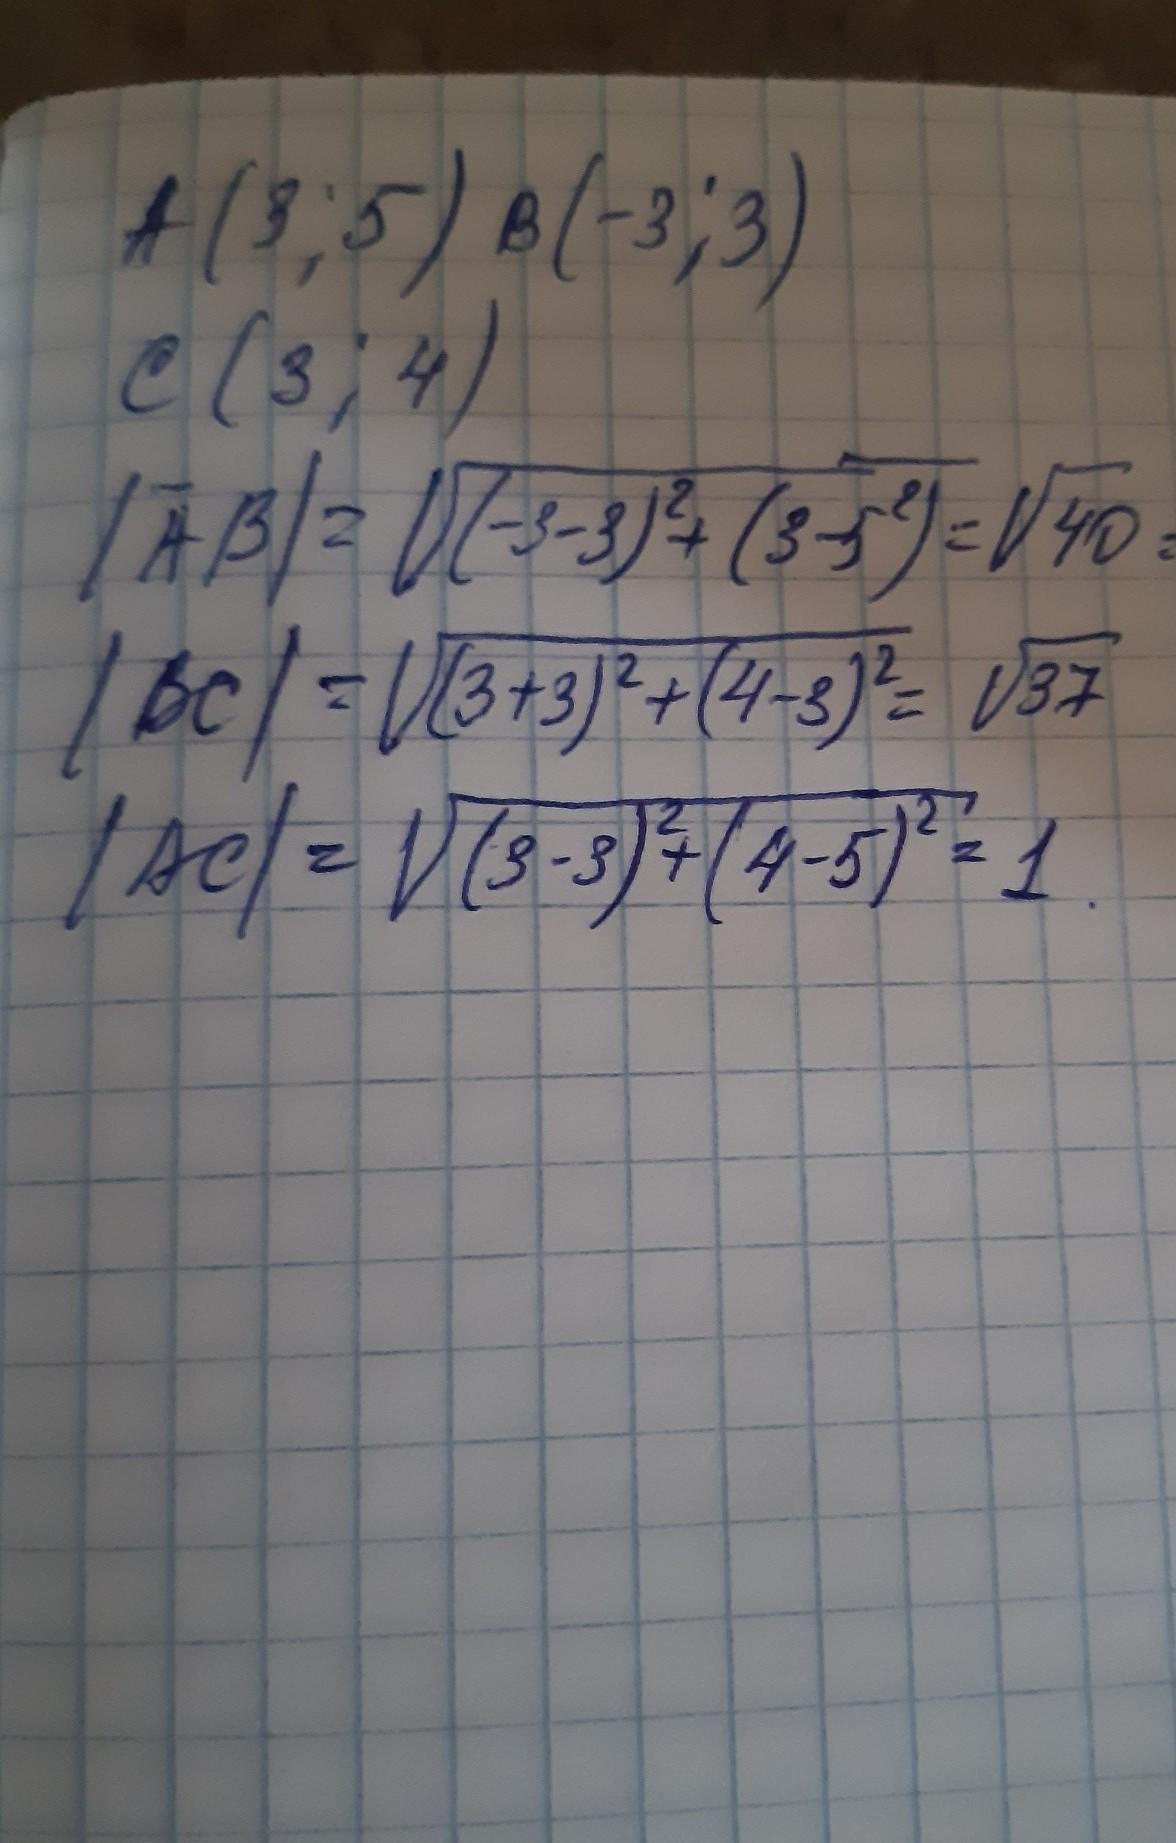 A(3;5) B(-3;3)
C(3;4)
|A̅B|=√(-3-3)²+(3-5²)=√40=
|BC|=√(3+3)²+(4-3)²=√37
|AC|=√(3-3)²+(4-5)²=1.